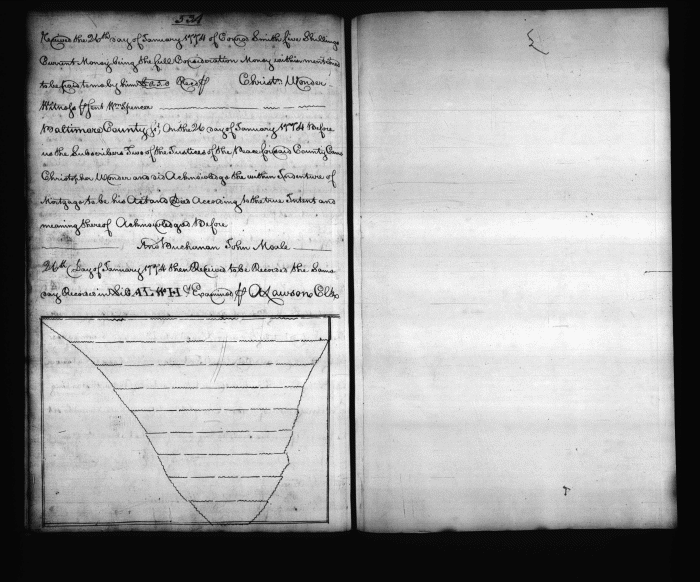 534
Received the 26th day of January 1774 of Conrod Smith five Shillings
Current Money being the full Consideration Money within mentioned
to be paid to me by him Rec'd p Christn Wonder
Witness p Jent Wm Spencer
Baltimore County ss. On the 26 day of January 1774 Before
us the Subscribers Two of the Justices of the Peace for said County Came
Christopher Wonder and did Acknowledge the within Indenture of
Mortgage to be his Act and Deed According to the true Intent and
meaning thereof Acknowledged Before
And Buchanan John Moale
26th Day of January 1774 then Received to be Recorded the Same
day Recorded in Lib AL No H & Examined p A Lawson Clk